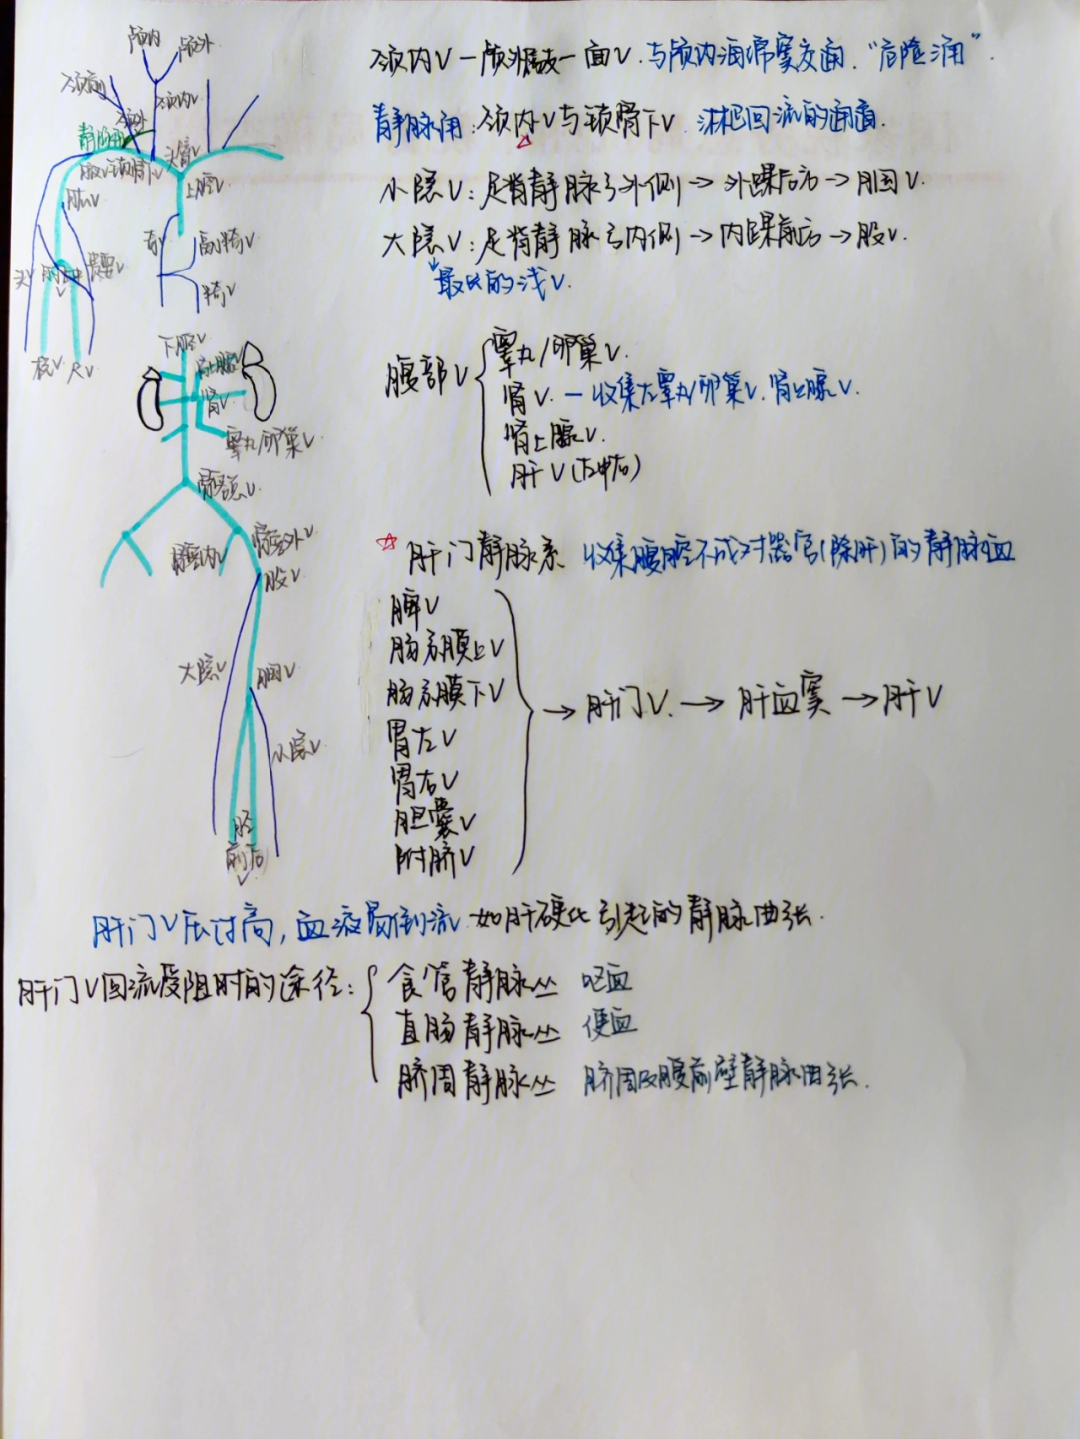 颅内 颅外
颈前
颈外
颈内V
静脉角
头臂V
腋V 锁骨下V
肱V
上腔V
奇V
副奇V
半奇V
头V
肘正中V
贵要V
桡V 尺V
下腔V
肾上腺V
肾V
睾丸/卵巢V
髂总V
髂内V
髂外V
股V
大隐V
腘V
小隐V
胫
前后
V
颈内V－颅外段－面V.与颅内海绵窦交通."危险涌"
静脉角:颈内V与锁骨下V 淋巴回流的通道.
小隐V:足背静脉弓外侧→外踝后方→腘V.
大隐V:足背静脉弓内侧→内踝前方→股V.
最长的浅V.
腹部V
睾丸/卵巢V.
肾V.－收集左睾丸/卵巢V.肾上腺V.
肾上腺V.
肝V(左中右)
☆肝门静脉系 收集腹腔不成对器官(除肝)的静脉血
脾V
肠系膜上V
肠系膜下V
胃左V
胃右V
胆囊V
附脐V
→肝门V.→肝血窦→肝V
肝门V压过高,血液易倒流.如肝硬化引起的静脉曲张.
肝门V回流受阻时的途径:
食管静脉丛 呕血
直肠静脉丛 便血
脐周静脉丛 脐周及腹前壁静脉曲张.